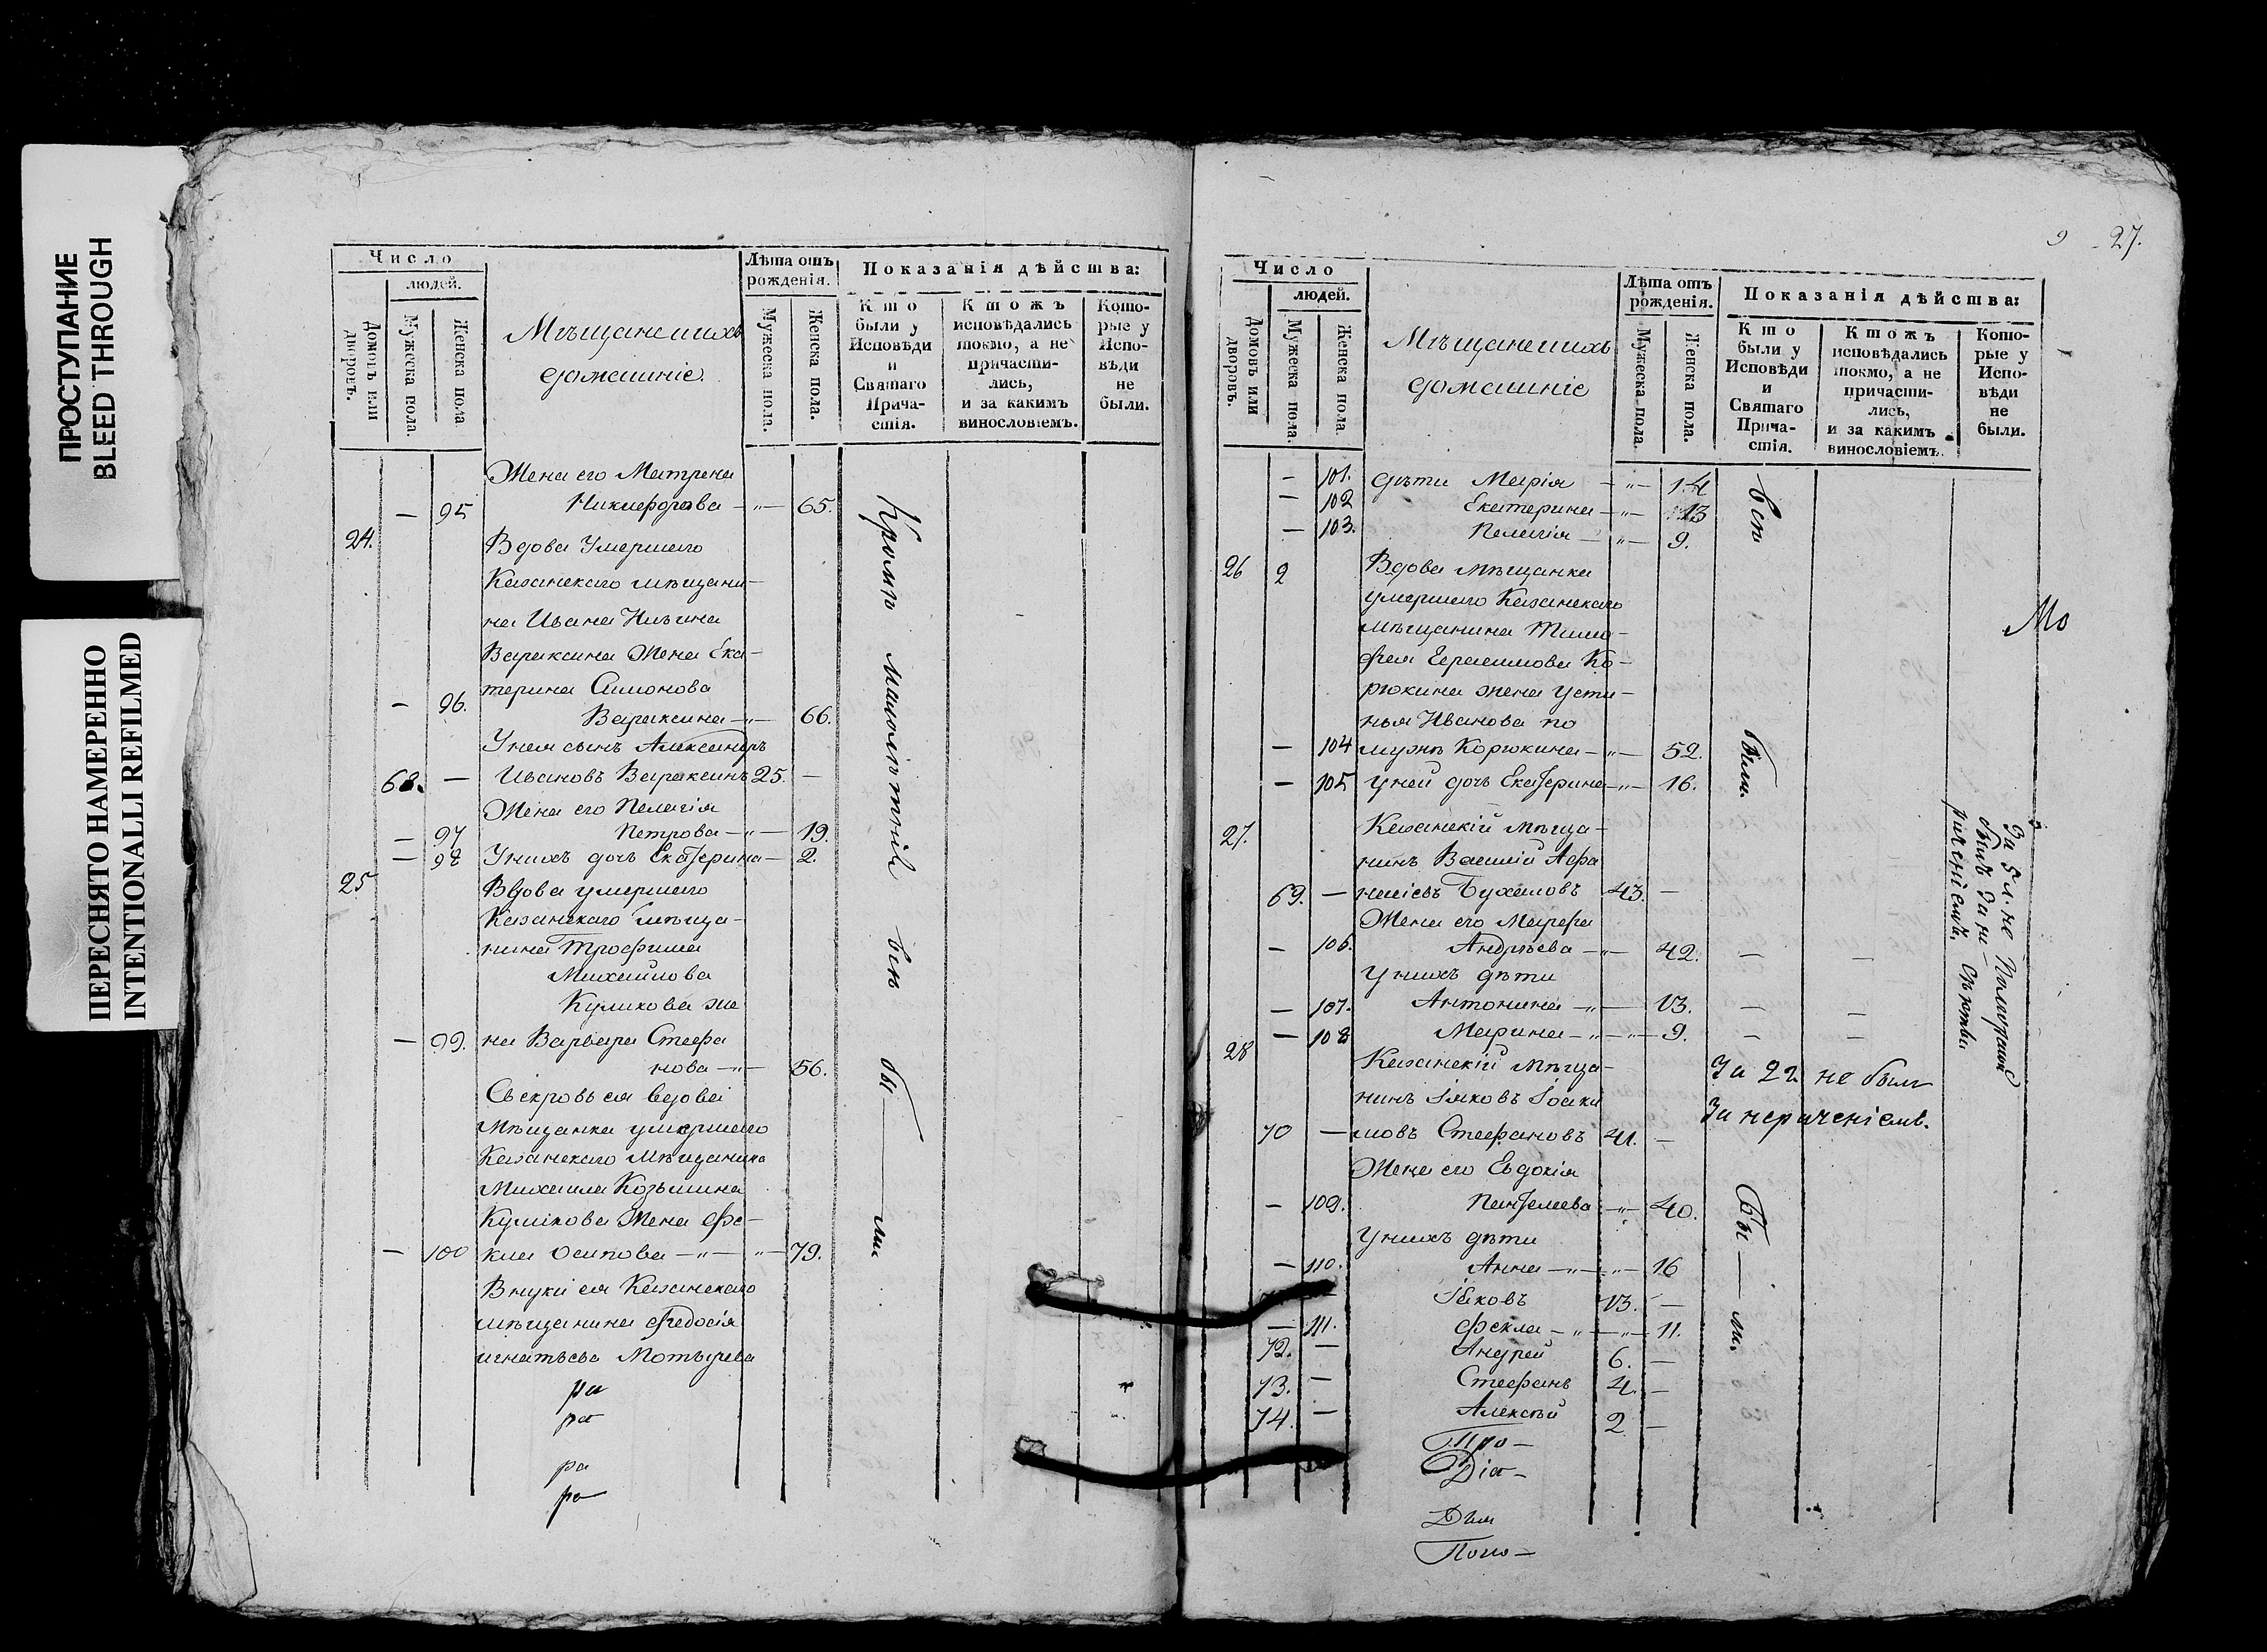 ПРОСТУПАНИЕ
BLEED THROUGH
ПЕРЕСНЯТО НАМЕРЕННО
INTENTIONALLI REFILMED
Число
людей.
Домовъ или дворовъ.
Мужеска пола.
Женска пола.
Мѣщане и ихъ
домашніе.
Лѣта отъ
рожденія.
Мужеска пола.
Женска пола.
Показанія дѣйства:
Кто
были у
Исповѣди
и
Святаго
Прича-
стія.
Ктожъ
исповѣдались
токмо, а не
причасти-
лись,
и за какимъ
винословіемъ.
Кото-
рые у
Испо-
вѣди
не
были.
Жена его Матрена
— 95 Никифорова — 65.
24. Вдова Умершаго
Казанскаго мѣщани-
на Ивана Ильина
Вараксина Жена Ека-
— 96. терина Симонова
Вараксина — 66.
У нея сынъ Александръ
68. — Ивановъ Вараксинъ 25. —
Жена его Пелагія
— 97 Петрова — 19.
— 98 У нихъ дочь Екатерина — 2.
25 Вдова умершаго
Казанскаго мѣща-
нина Трофима
Михайлова
Куликова же
— 99. на Варвара Стефа
нова — 56.
Свекровь ея вдова
Мѣщанка умершаго
Казанскаго Мѣщанина
Михаила Козьмина
Куликова Жена Фе-
— 100 кла Осипова — 79.
Внуки ея Казанскаго
мѣщанина Федосія
Игнатьева Мотырева
ра
ра
ра
ра
Кромѣ малолѣтній всѣ бы — ли
9 27.
Число
людей.
Домовъ или дворовъ.
Мужеска пола.
Женска пола.
Мѣщане и ихъ
домашніе
Лѣта отъ
рожденія.
Мужеска пола.
Женска пола.
Показанія дѣйства:
Кто
были у
Исповѣди
и
Святаго
Прича-
стія.
Ктожъ
исповѣдались
токмо, а не
причасти-
лись,
и за какимъ
винословіемъ.
Кото-
рые у
Испо-
вѣди
не
были.
— 101. дѣти Марія — 14
— 102 Екатерина — 13
— 103. Пелагія — 9.
26 2 Вдова мѣщанка
умершаго Казанскаго
мѣщанина Тимо-
фея Герасимова Ко-
рюкина жена Усти-
нья Иванова по
— 104 мужѣ Корюкина — 52.
— 105 у ней дочь Екатерина — 16.
всѣ были.
Мо
27. Казанскій Мѣща-
нинъ Василій Афа
69. — насіевъ Бухаловъ 43. —
Жена его Марфа
— 106. Андрѣева — 42. — —
У нихъ дѣти
— 107. Антонина — 13. — —
— 108 Марина — 9. — —
За 5 л. не
былъ за не-
раченіемъ.
28 Казанскій Мѣща-
нинъ Іяковъ Іоаки
70 — мовъ Стефановъ 41. —
За 22 не был
За нераченіемъ.
Жена его Евдокія
— 109. Пантелеева — 40.
У нихъ дѣти
— 110. Анна — 16
Іаковъ 13. —
— 111. Фекла — 11.
72. — Андрей 6. —
73. — Стефанъ 4. —
74. — Алексѣй 2 —
Бы — ли.
Про-
Діа-
Дья
Поно-